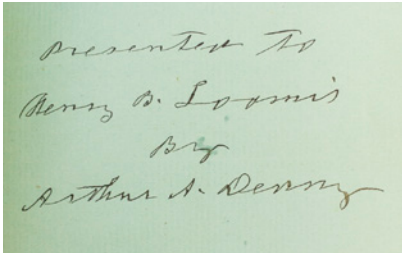 Presented To
Henry B. Loomis
By
Arthur A. Denny